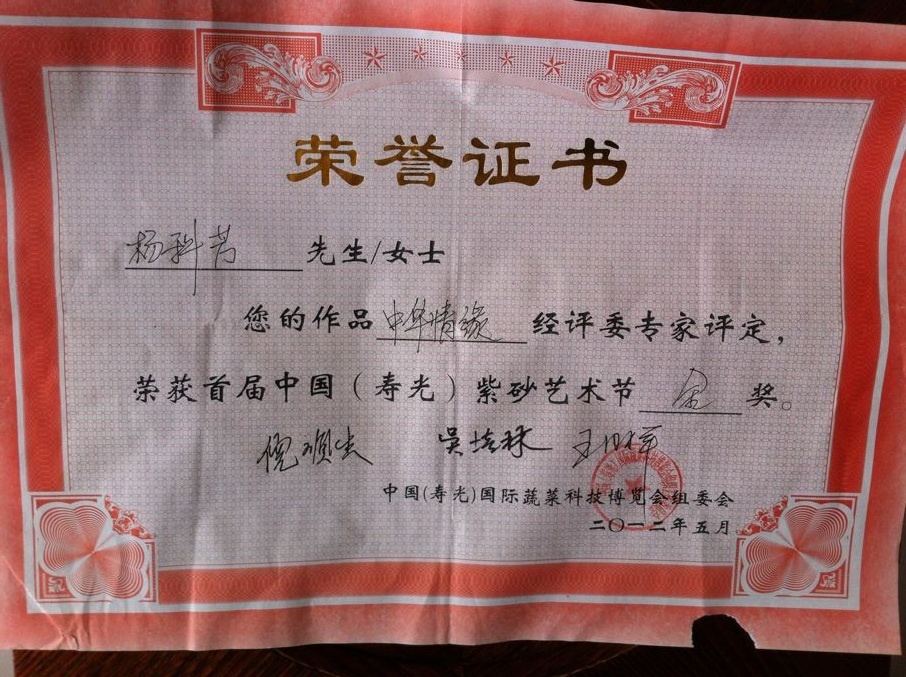 荣誉证书
杨科芳 先生/女士
您的作品中华情缘经评委专家评定，
荣获首届中国（寿光）紫砂艺术节金奖。
倪顺生 吴培林
中国(寿光)国际蔬菜科技博览会组委会
二〇一二年五月